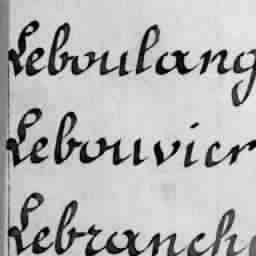 Leboulang
Lebouvier
Lebranche